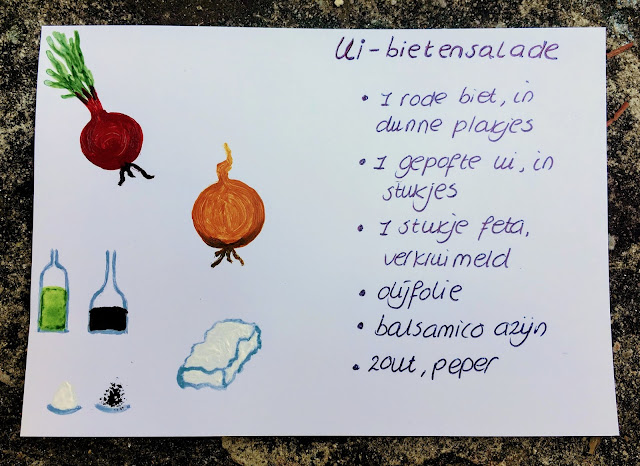 Ui-bietensalade
• 1 rode biet, in
dunne plakjes
• 1 gepofte ui, in
stukjes
• 1 stukje feta,
verkruimeld
• olijfolie
• balsamico azijn
• zout, peper